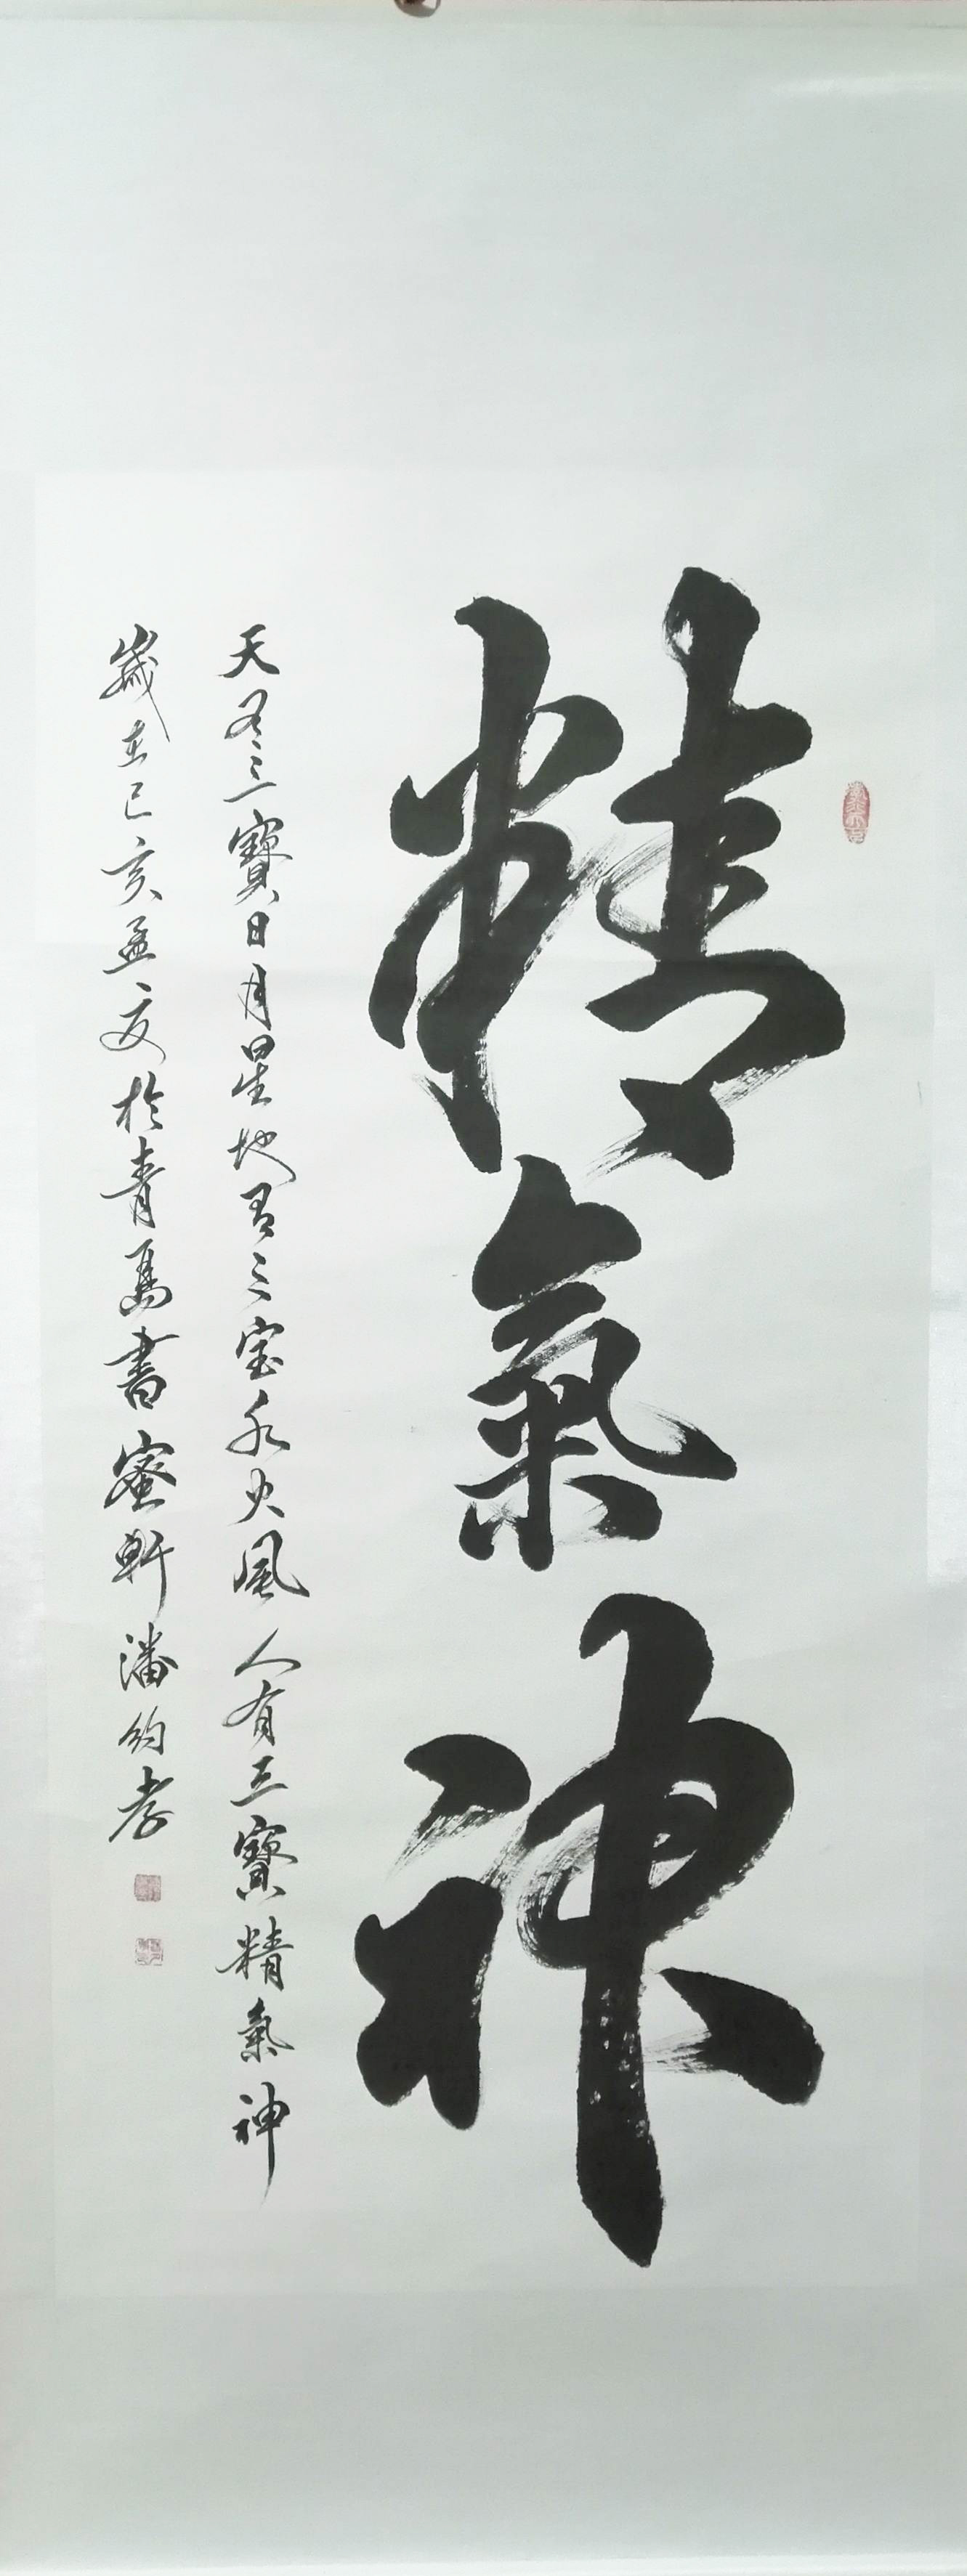 精氣神
天有三寶日月星地有三宝水火風人有三寶精氣神
歲在己亥孟夏於青島書蜜軒潘約孝